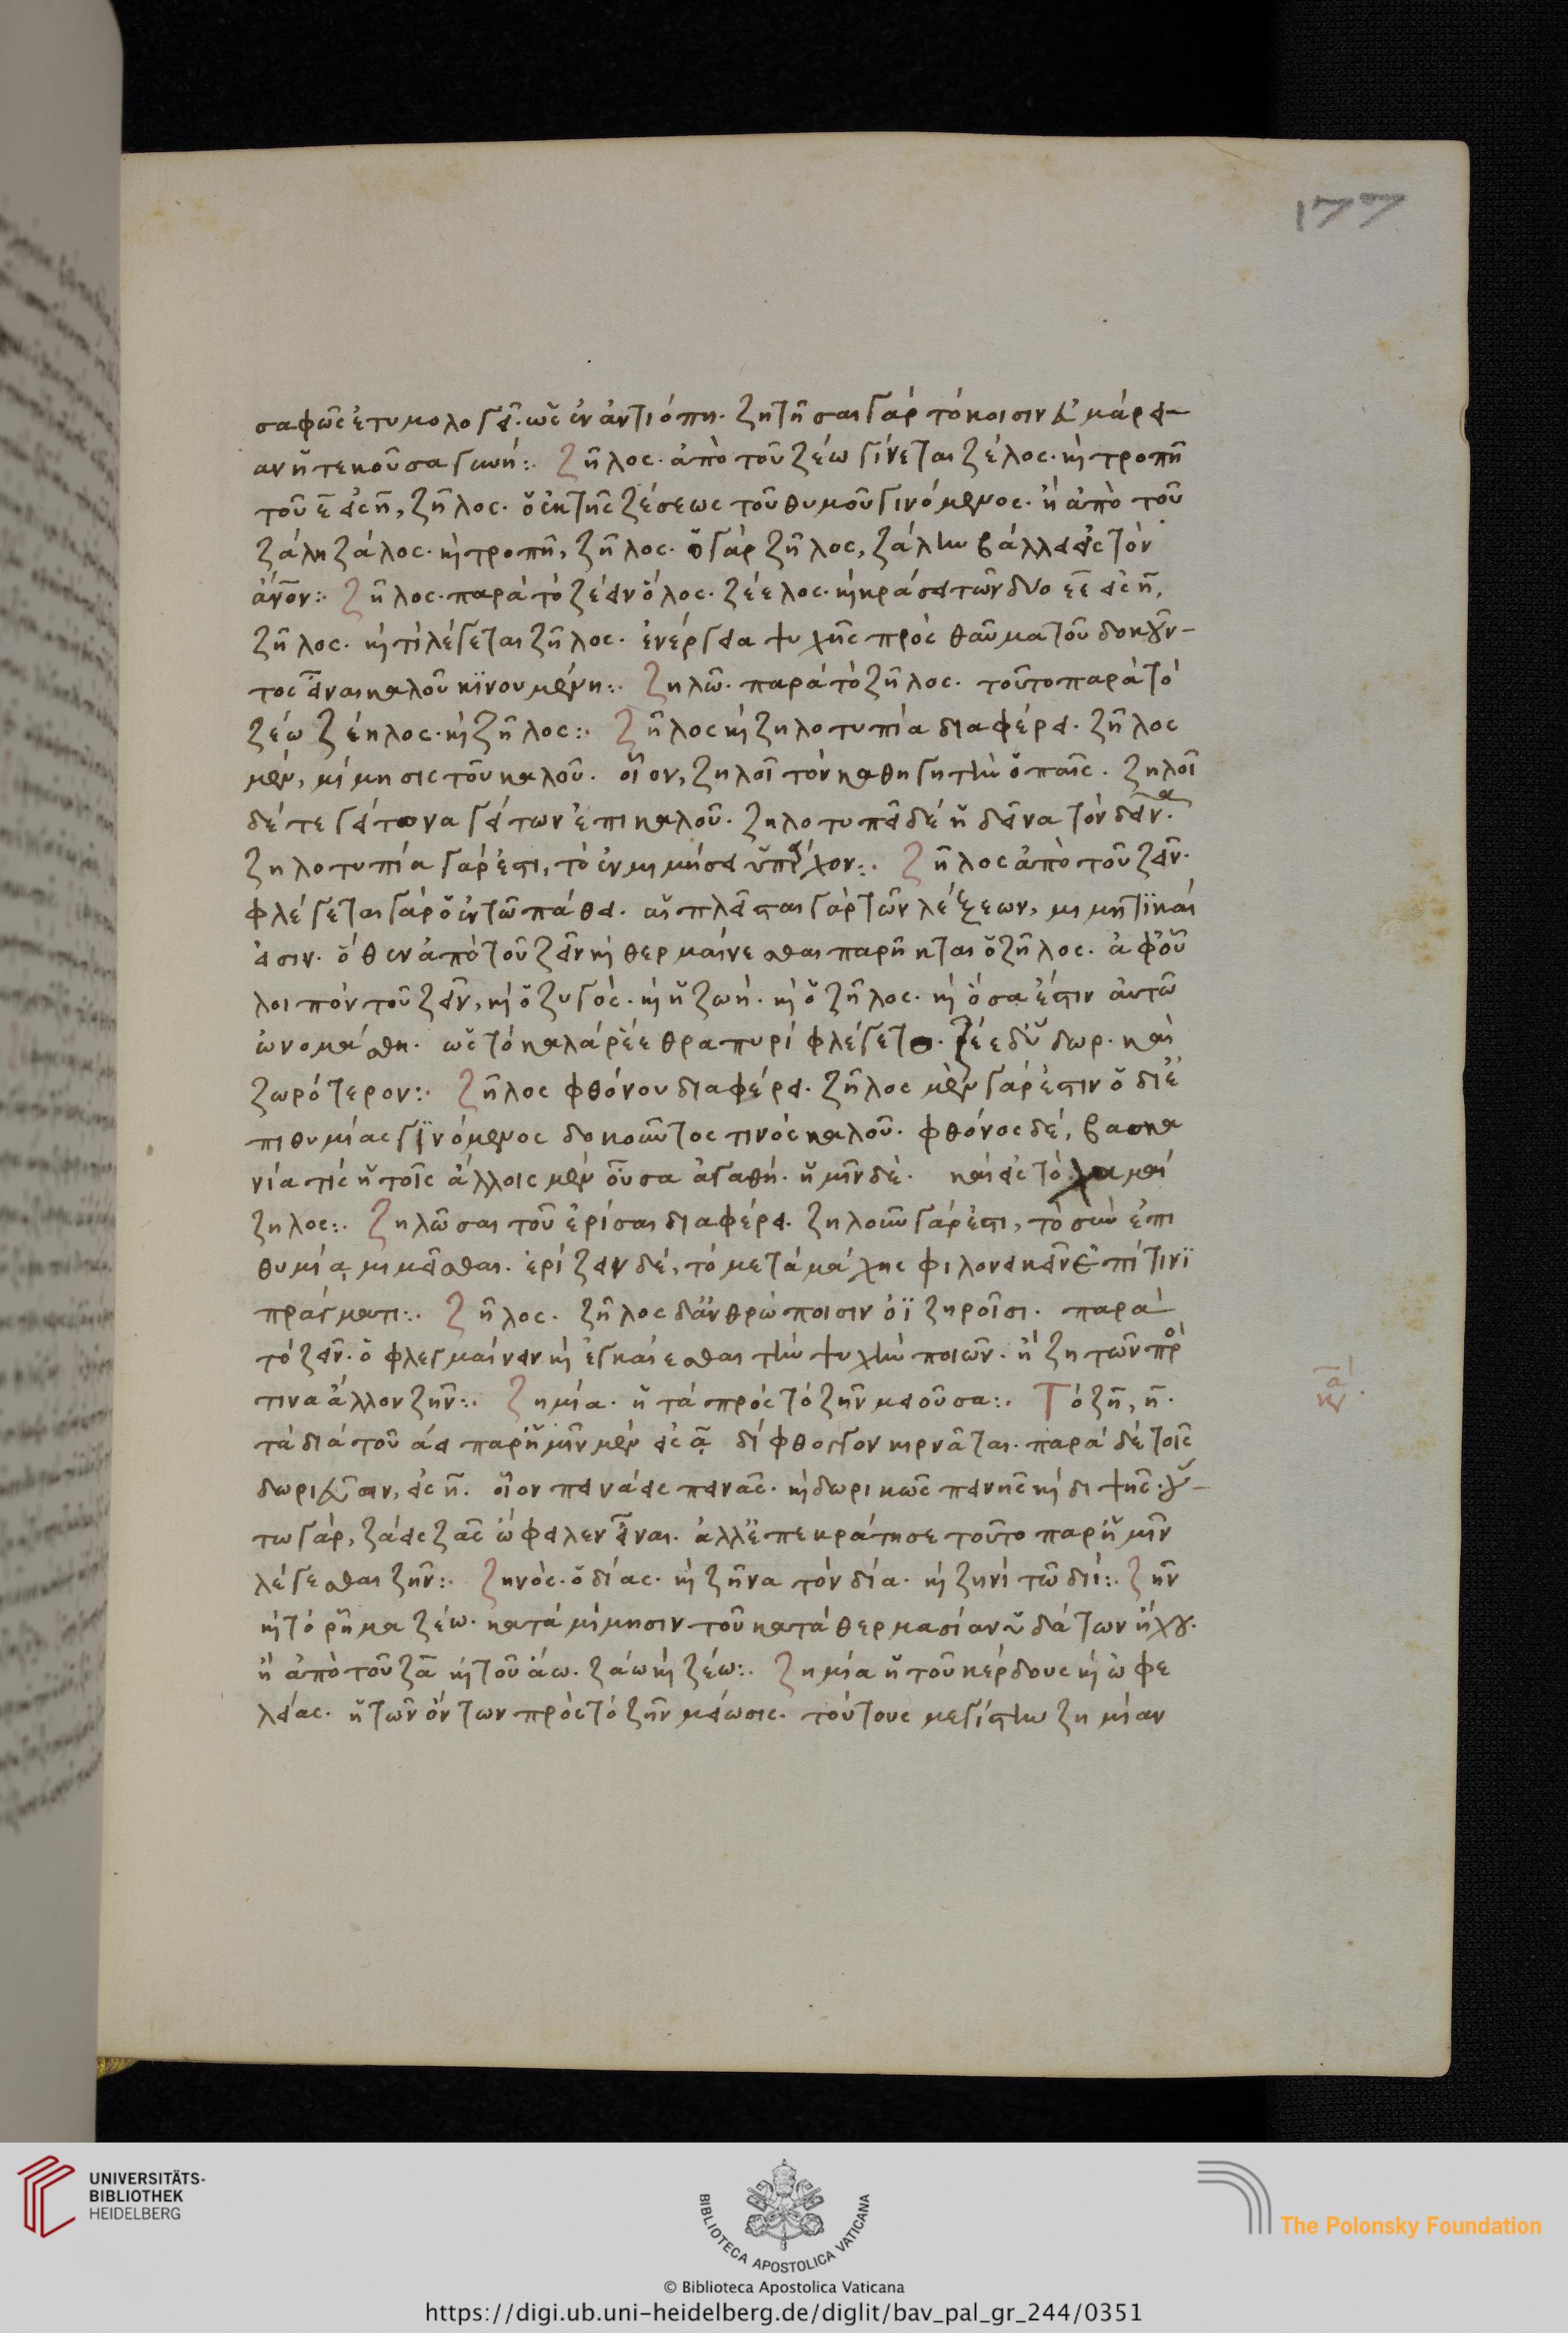 177
σαφῶς ἐτυμολογεῖ· ὡς ἐν ἀντιόπη· ζητῆσαι γὰρ τόκοισιν εὐμάρει-
αν ἡ τεκοῦσα γυνή:· Ζῆλος· ἀπὸ τοῦ ζέω γίνεται ζέλος· καὶ τροπῆ
τοῦ ε̄ εἰς η̄, ζῆλος· ὁ ἐκ τῆς ζέσεως τοῦ θυμοῦ γινόμενος· ἢ ἀπὸ τοῦ
ζάλη ζάλος· καὶ τροπῆ, ζῆλος· ὁ γὰρ ζῆλος, ζάλην βάλλει εἰς τὸν
ἄνον:· Ζῆλος· παρὰ τὸ ζέειν ὅλος· ζέελος· καὶ κράσει τῶν δυο εε εἰς η̄,
ζῆλος· καὶ τί λέγεται ζῆλος· ἐνέργεια ψυχῆς πρὸς θαῦμα τοῦ δοκοῦν-
τος εἶναι καλοῦ κϊνουμένη:· Ζηλῶ· παρὰ τὸ ζῆλος· τοῦτο παρὰ τὸ
ζέω ζέηλος· καὶ ζῆλος:· Ζῆλος καὶ ζηλοτυπία διαφέρει· ζῆλος
μὲν, μίμησις τοῦ καλοῦ· οἷον, ζηλοῖ τὸν καθηγητὴν ὁ παῖς· ζηλοῖ
δέ τε γείτονα γείτων ἐπι καλοῦ· ζηλοτυπεῖ δὲ ἡ δεῖνα τὸν δεῖνα·
ζηλοτυπία γάρ ἐστι, τὸ ἐν μιμήσει ὑπάρχον:· Ζῆλος ἀπὸ τοῦ ζεῖν·
φλέγεται γὰρ ὁ ἐν τῶ πάθει· αἱ πλεῖσται γὰρ τῶν λέξεων, μιμητϊκαί
εἰσιν· ὅθεν ἀπὸ τοῦ ζεῖν καὶ θερμαίνεσθαι παρῆκται ὁ ζῆλος· ἀφ' οὗ
λοιπὸν τοῦ ζεῖν, καὶ ὁ ζυγός· καὶ ἡ ζωή· καὶ ὁ ζῆλος· καὶ ὅσα ἐστὶν αὐτῶ
ὠνομάσθη· ὡς τὸ καλὰ ῥέεθρα πυρὶ φλέγετο· ζέε δ' ὕδωρ· καὶ
ζωρότερον:· Ζῆλος φθόνου διαφέρει· ζῆλος μὲν γάρ ἐστιν ὁ δι' ἐ
πιθυμίας γϊνόμενος δοκοῦντος τινὸς καλοῦ· φθόνος δὲ, βασκα
νία τις ἡ τοῖς ἄλλοις μὲν οὖσα ἀγαθή· ἡμῖν δὲ· καὶ εἰς τὸ μαί
ζηλος:· Ζηλῶσαι τοῦ ἐρίσαι διαφέρει· ζηλοῦν γάρ ἐστι, τὸ σὺν ἐπι
θυμία μιμεῖσθαι· ἐρίζειν δὲ, τὸ μετὰ μάχης φιλονεικεῖν ἐπί τινϊ
πράγματι:· Ζῆλος· ζῆλος δ' ἀνθρώποισιν ὀϊζηροῖσι· παρὰ
τὸ ζεῖν· ὁ φλεγμαίνειν καὶ ἐγκαίεσθαι τὴν ψυχὴν ποιῶν· ἢ ζητῶν πρὸ
τινα ἄλλον ζῆν:· Ζημία· ἡ τὰ πρὸς τὸ ζῆν μειοῦσα:· Τὸ ζῆ, η̄·
τὰ διὰ τοῦ άει παρ' ἡμῖν μὲν εἰς ᾱ δίφθογγον κιρνᾶται· παρὰ δὲ τοῖς
δωριεῦσιν, εἰς η̄· οἷον πεινάεις πεινᾶς· καὶ δωρικῶς πεινῆς καὶ διψῆς· οὕ-
τω γὰρ, ζάεις ζᾶς ὤφειλεν εἶναι· ἀλλ' ἐπεκράτησε τοῦτο παρ' ἡμῖν
λέγεσθαι ζῆν:· Ζηνός· ὁ δίας· καὶ ζῆνα τὸν δία· καὶ ζηνὶ τῶ διί:· Ζῆν
καὶ τὸ ῥῆμα ζέω· κατὰ μίμησιν τοῦ κατὰ θερμασίαν ὑδάτων ἤχου·
ἢ ἀπὸ τοῦ ζᾶ καὶ τοῦ ἄω· ζάω καὶ ζέω:· Ζημία ἡ τοῦ κέρδους καὶ ὠφε
λείας· ἡ τῶν ὄντων πρὸς τὸ ζῆν μείωσις· τούτους μεγίστην ζημίαν
UNIVERSITÄTS-
BIBLIOTHEK
HEIDELBERG
BIBLIOTECA APOSTOLICA VATICANA
The Polonsky Foundation
© Biblioteca Apostolica Vaticana
https://digi.ub.uni-heidelberg.de/diglit/bav_pal_gr_244/0351